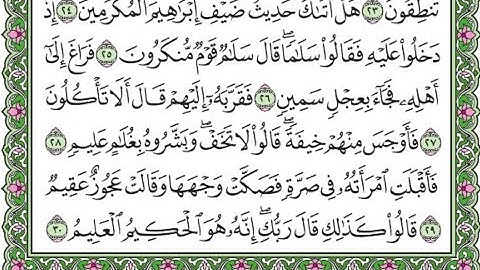 تَنطِقُونَ ٢٣ هَلْ أَتَىٰكَ حَدِيثُ ضَيْفِ إِبْرَٰهِيمَ ٱلْمُكْرَمِينَ ٢٤ إِذْ
دَخَلُوا۟ عَلَيْهِ فَقَالُوا۟ سَلَٰمًا ۖ قَالَ سَلَٰمٌ قَوْمٌ مُّنكَرُونَ ٢٥ فَرَاغَ إِلَىٰٓ
أَهْلِهِۦ فَجَآءَ بِعِجْلٍ سَمِينٍ ٢٦ فَقَرَّبَهُۥٓ إِلَيْهِمْ قَالَ أَلَا تَأْكُلُونَ
٢٧ فَأَوْجَسَ مِنْهُمْ خِيفَةً ۖ قَالُوا۟ لَا تَخَفْ ۖ وَبَشَّرُوهُ بِغُلَٰمٍ عَلِيمٍ ٢٨
فَأَقْبَلَتِ ٱمْرَأَتُهُۥ فِى صَرَّةٍ فَصَكَّتْ وَجْهَهَا وَقَالَتْ عَجُوزٌ عَقِيمٌ
٢٩ قَالُوا۟ كَذَٰلِكِ قَالَ رَبُّكِ ۖ إِنَّهُۥ هُوَ ٱلْحَكِيمُ ٱلْعَلِيمُ ٣٠